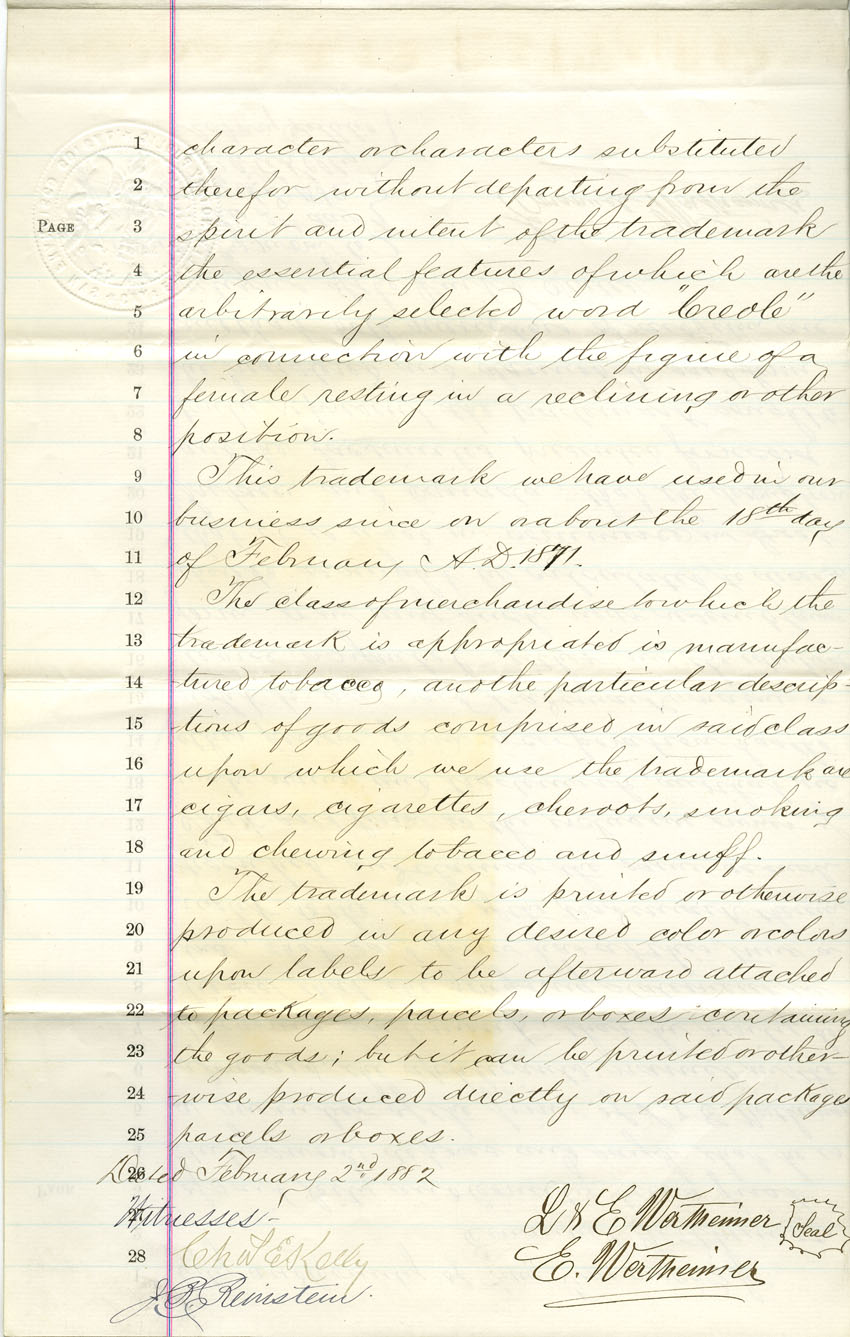 1 character or characters substituted
2 therefor without departing from the
PAGE 3 spirit and intent of the trademark
4 the essential features of which are the
5 arbitrarily selected word "Creole"
6 in connection with the figure of a
7 female resting in a reclining or other
8 position.
9 This trademark we have used in our
10 business since on or about the 18th day
11 of February A.D. 1871.
12 The class of merchandise to which the
13 trademark is appropriated is manufac-
14 tured tobacco, and the particular descrip-
15 tions of goods comprised in said class
16 upon which we use the trademark are
17 cigars, cigarettes, cheroots, smoking
18 and chewing tobacco and snuff.
19 The trademark is printed or otherwise
20 produced in any desired color or colors
21 upon labels to be afterward attached
22 to packages, parcels, or boxes containing
23 the goods; but it can be printed or other-
24 wise produced directly on said packages
25 parcels or boxes.
26 Dated February 2nd 1882
27 Witnesses- L & E Wertheimer Seal
28 Chas E Kelly E. Wertheimer
J. B. Reinstein.